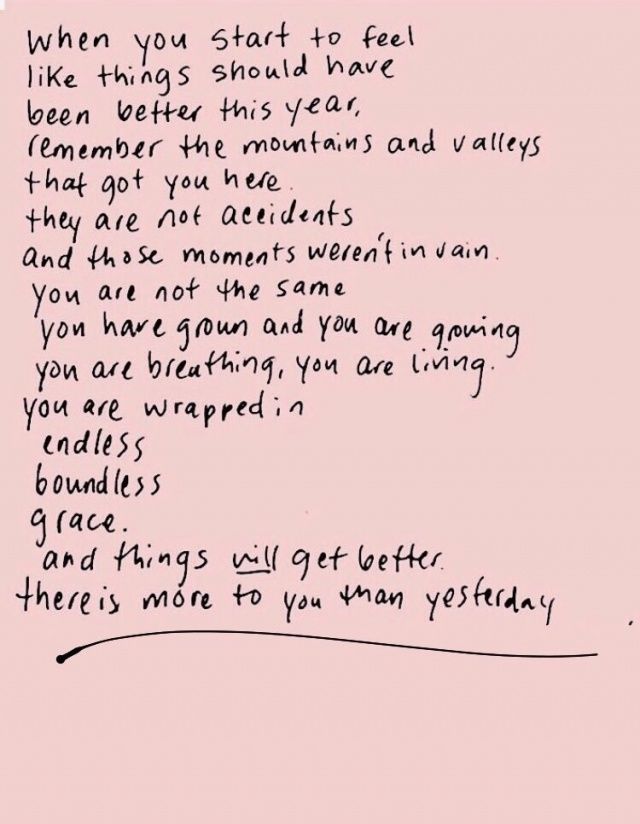 when you start to feel
like things should have
been better this year,
remember the mountains and valleys
that got you here.
they are not accidents,
and those moments weren't in vain.
you are not the same
you have grown and you are growing
you are breathing, you are living.
you are wrapped in
endless
boundless
grace.
and things will get better.
there is more to you than yesterday